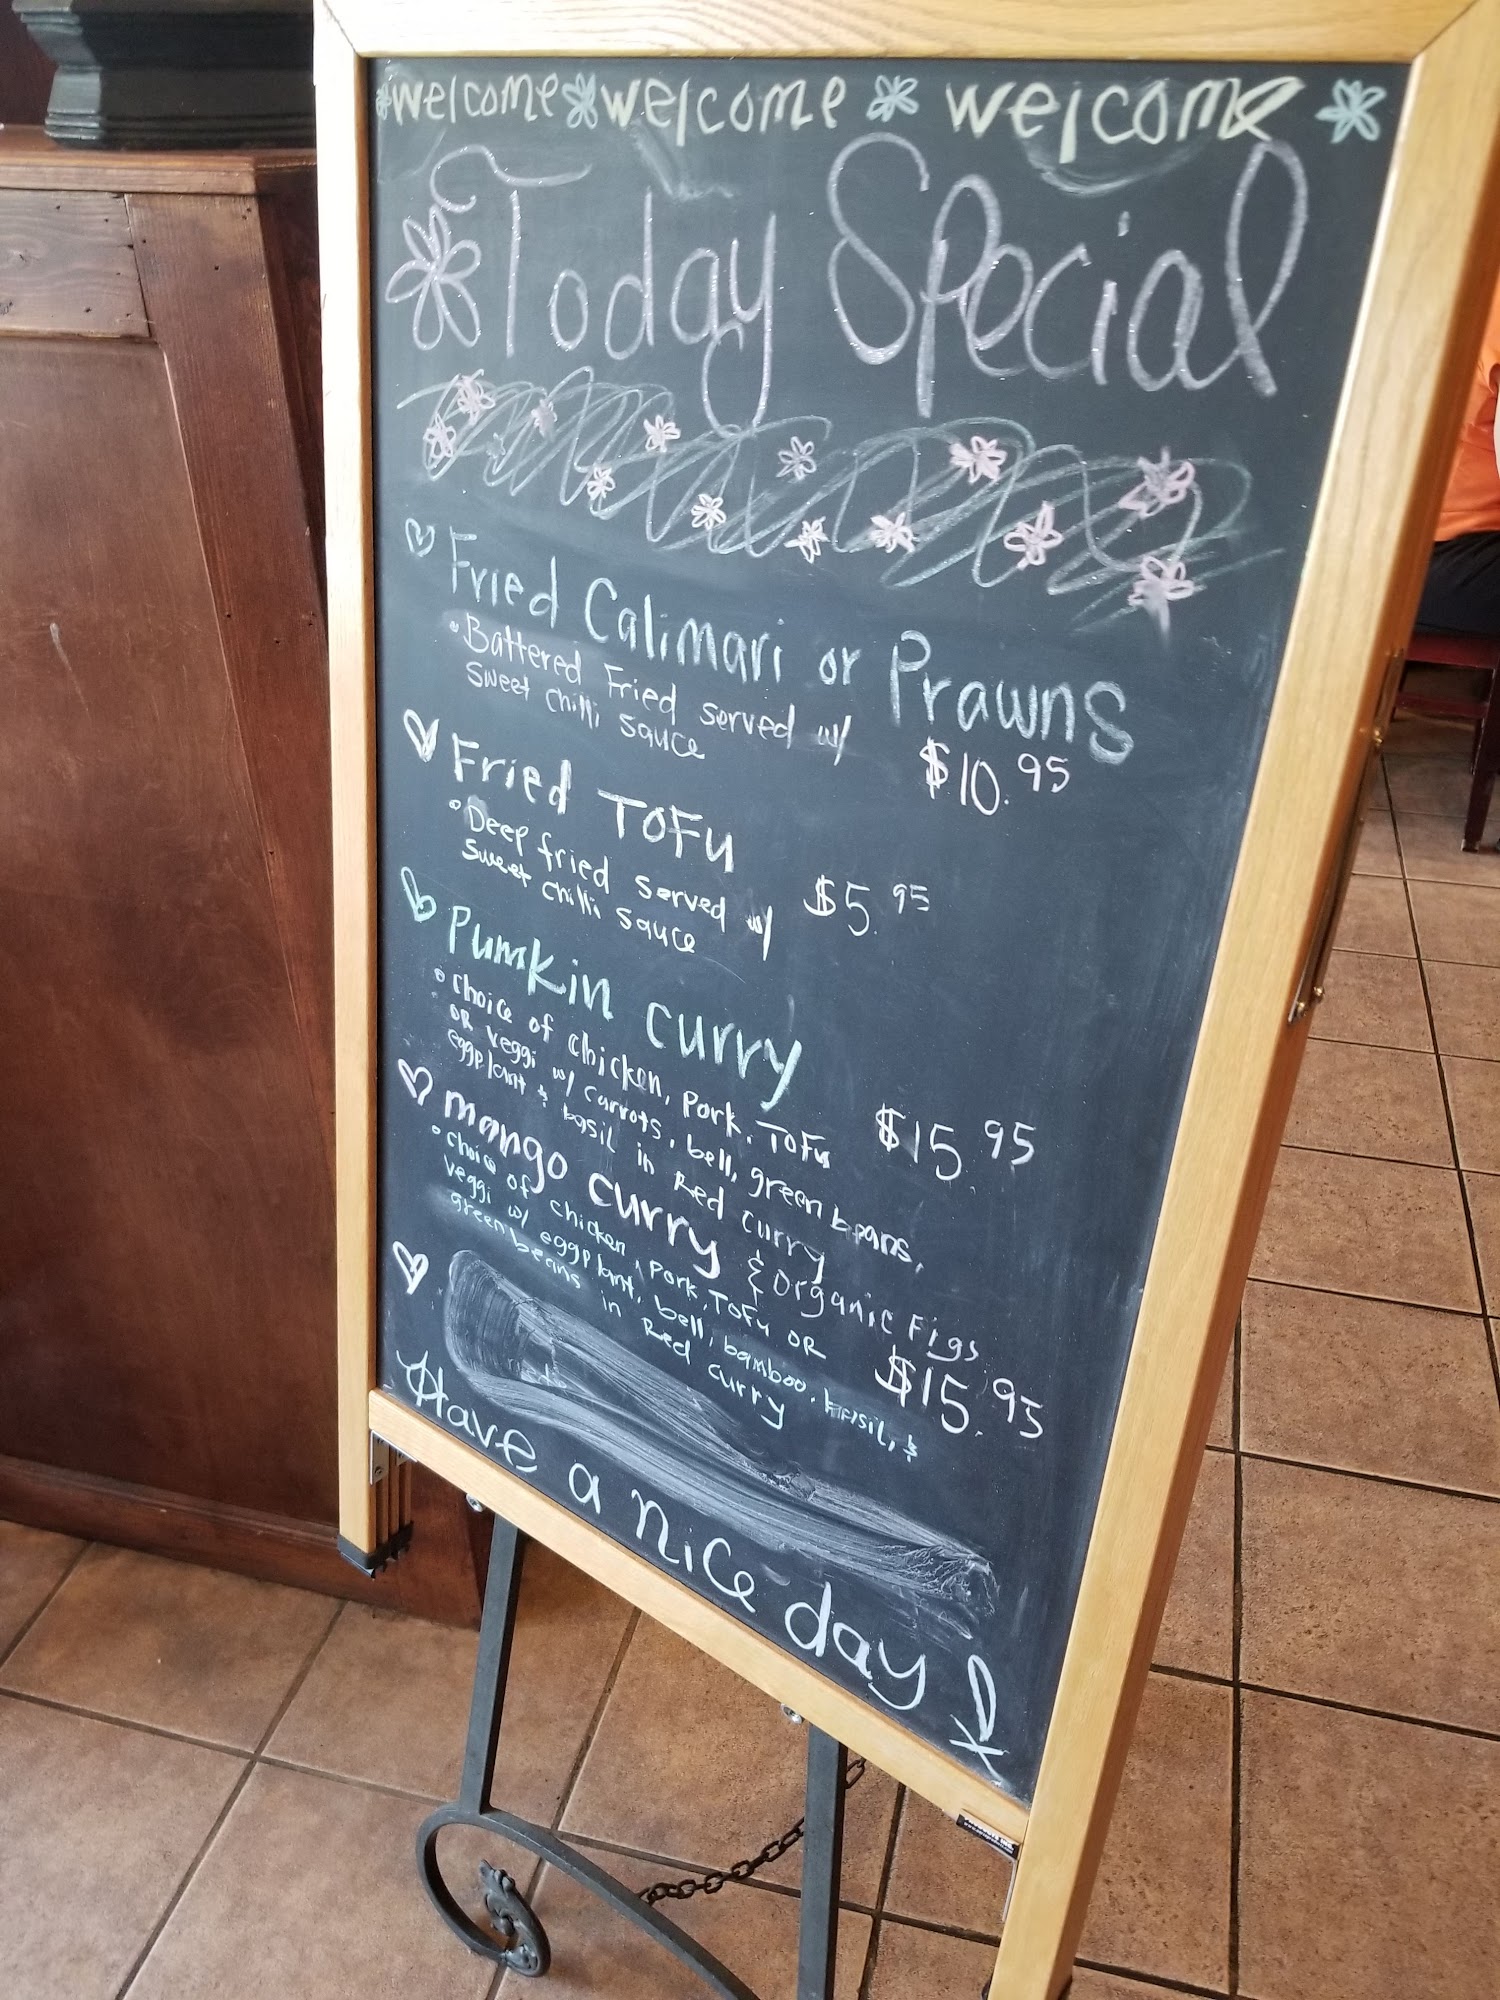 welcome welcome welcome
Today Special
Fried Calimari or Prawns
• Battered Fried served w/
sweet chilli sauce
$10.95
Fried TOFU
• Deep fried served w/
sweet chilli sauce
$5.95
Pumkin curry
• choice of chicken, pork, TOFU
OR veggi w/ carrots, bell, green beans,
eggplant & basil in Red curry
$15.95
mango curry & Organic Figs
• choice of chicken, Pork, TOFU OR
veggi w/ eggplant, bell, bamboo, basil, &
green beans in Red curry
$15.95
Have a nice day!